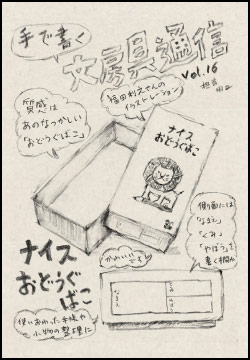 手で書く
文房具通信
vol.16
担当
田工
質感は
あのなつかしい
「おどうぐばこ」
福田利之さんの
イラストレーション
ナイス
おどうぐばこ
かわいいです
側面には
「なまえ」
「くみ」
「やくぼう」を
書く欄が
ナイス
おどうぐ
ばこ
使いおわった手帳や
小物の整理に